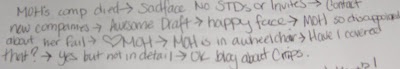 MOH's camp died → Sadface No STDs or Invites → Contact
new companies → Awesome Draft → happy face → MOH so disappointed
about her fail → ♡MOH → MOH is in a wheelchair → Have I covered
that? → yes but not in detail → OK blog about Crops.